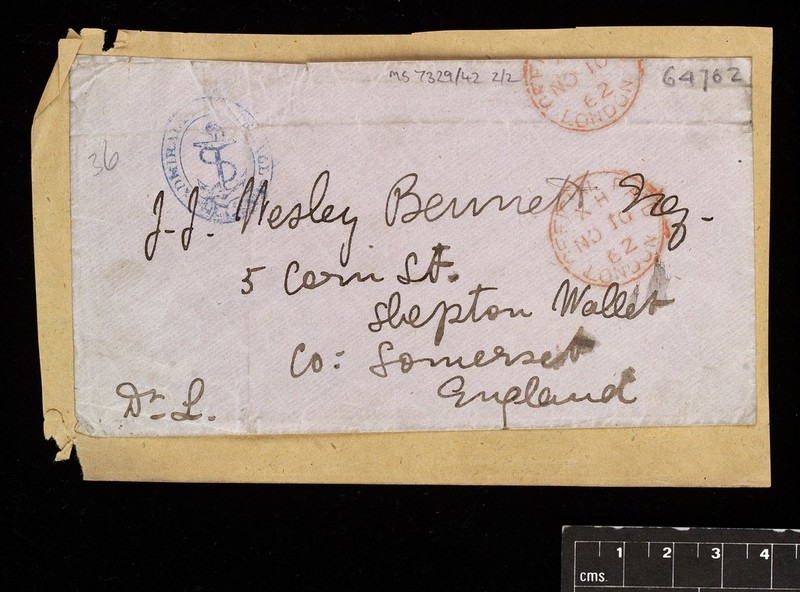 MS 7329/42 2/2
64762
36
NO 10
62
LONDON
J. J. Wesley Bennett Esq.
XH
NO 10
62
LONDON
5 Corn St.
Shepton Mallet
Co: Somerset
England
Dr. L.
1 2 3 4
cms.